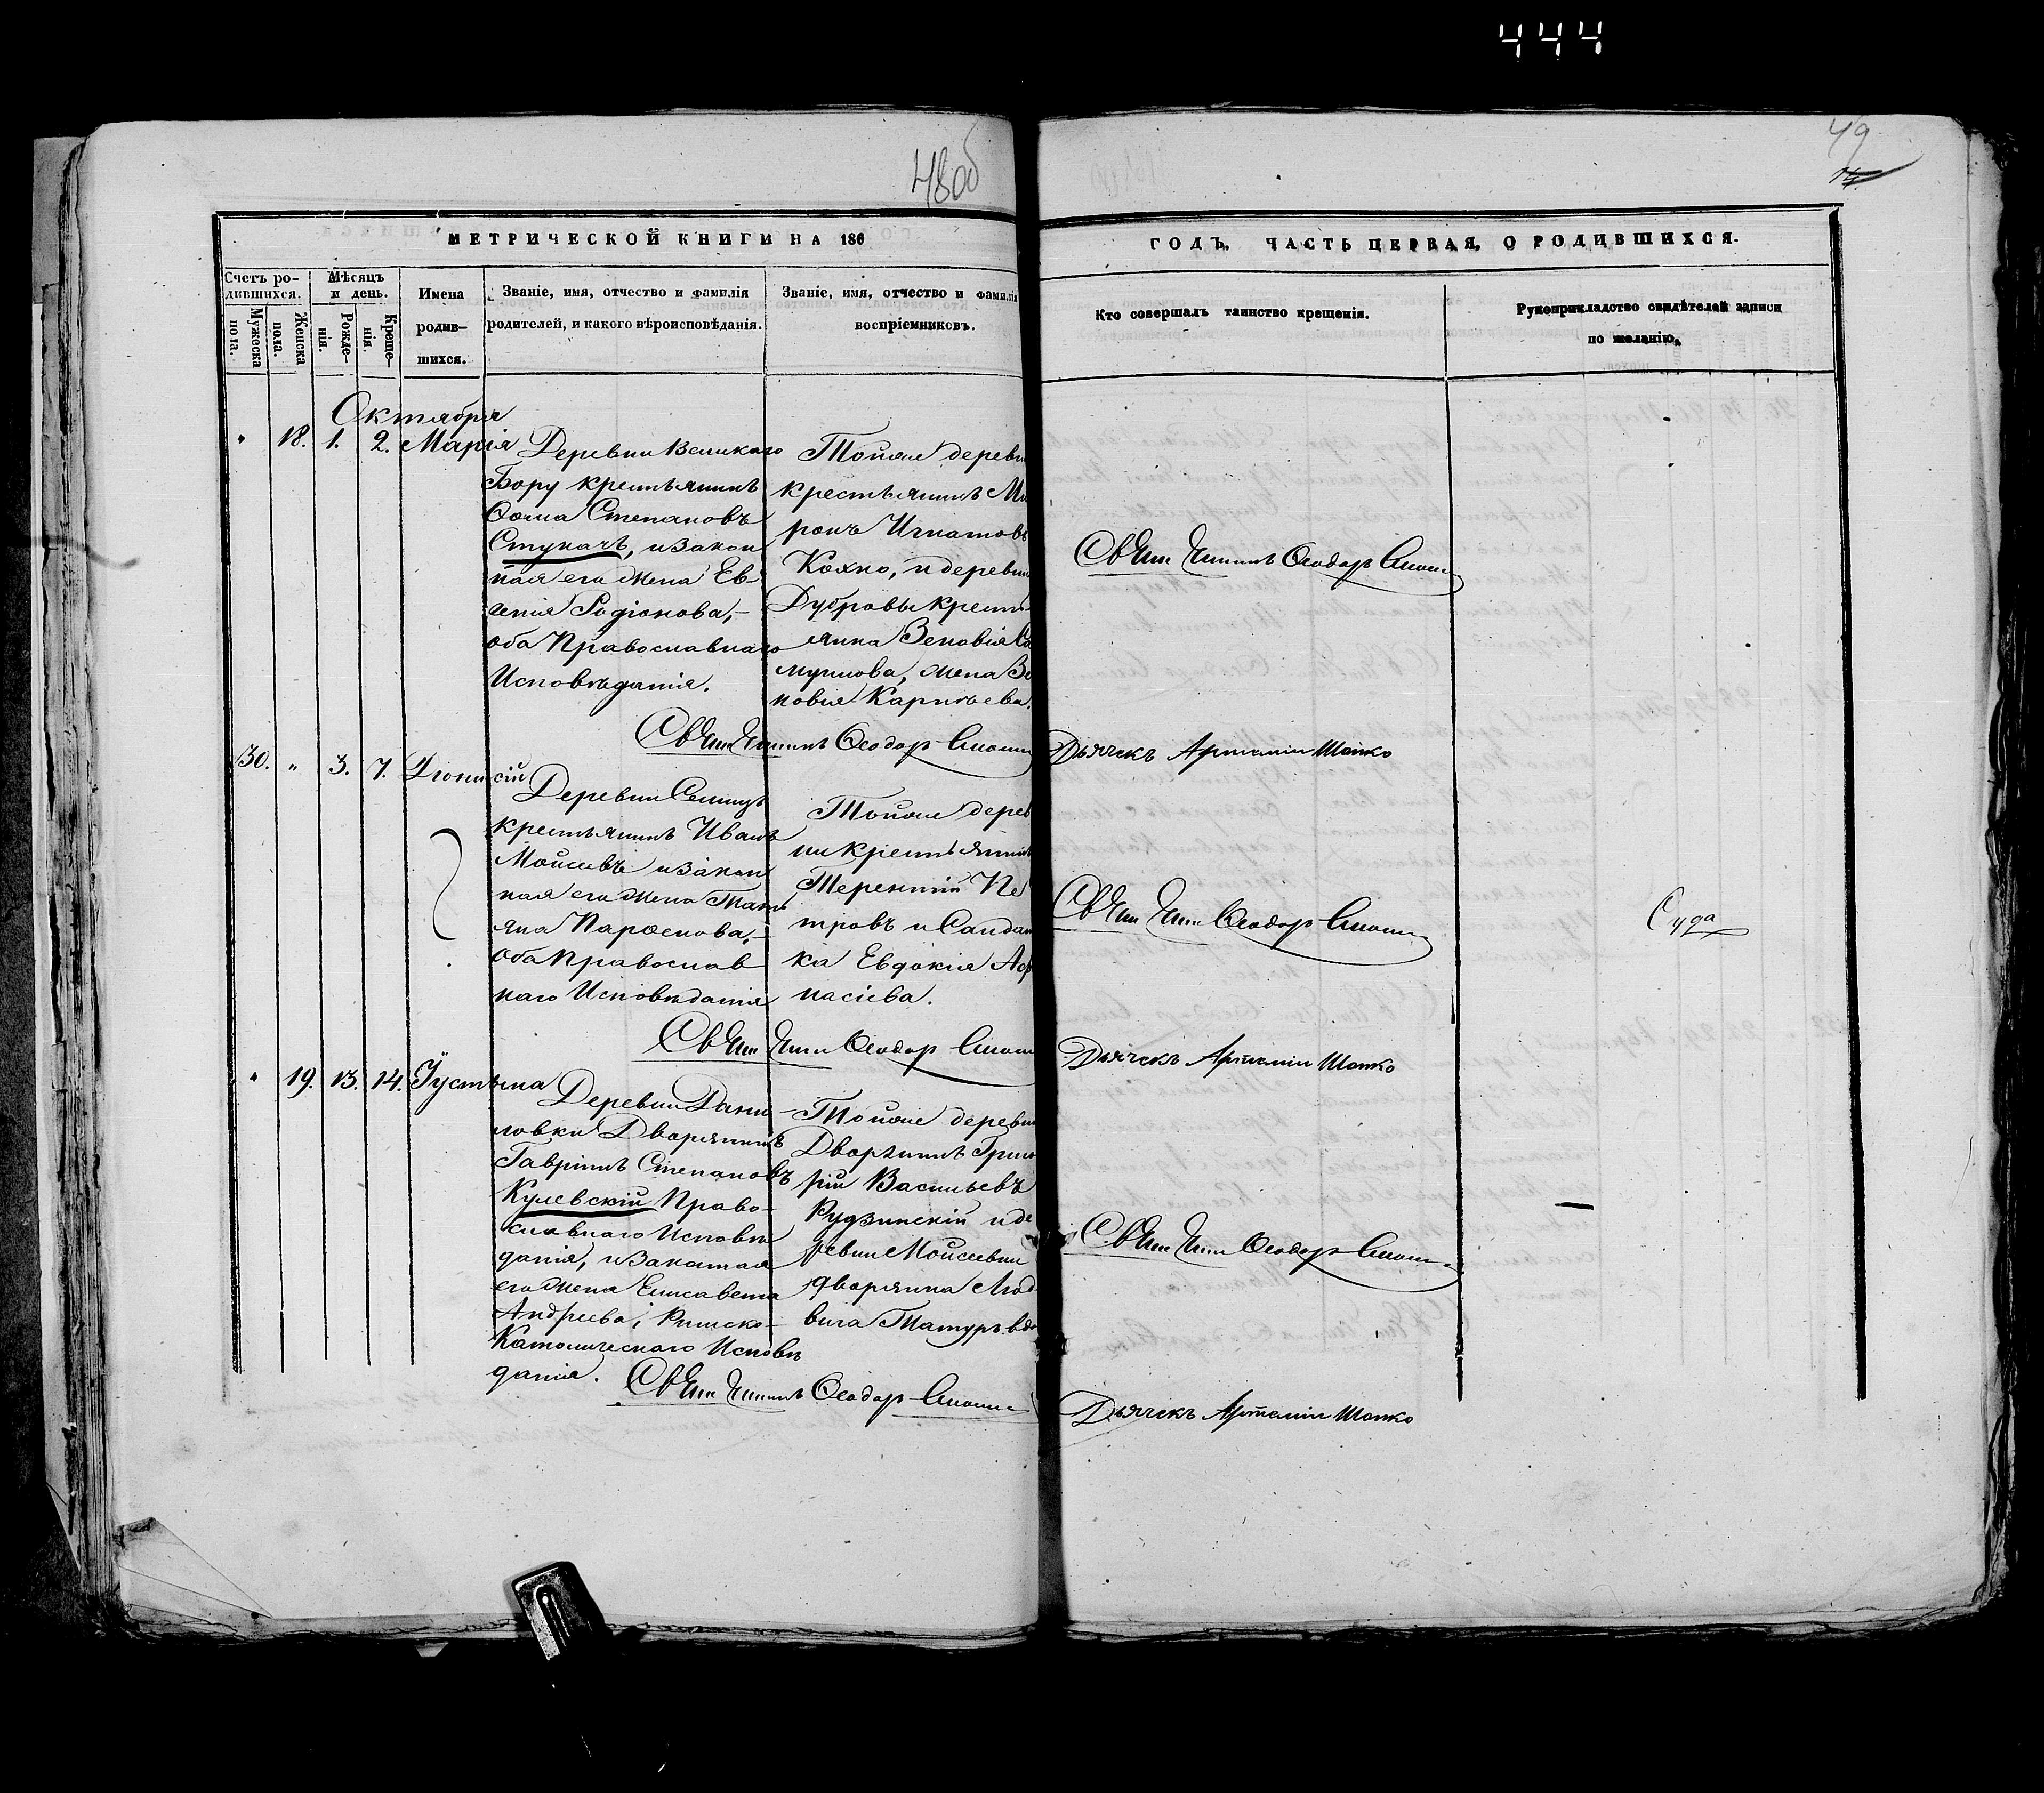 444
48об
49
МЕТРИЧЕСКОЙ КНИГИ НА 186
ГОДЪ, ЧАСТЬ ПЕРВАЯ, О РОДИВШИХСЯ.
Счетъ ро-
дившихся.
Мужеска
пола.
Женска
пола.
Мѣсяцъ
и день.
Рожде-
нія.
Креще-
нія.
Имена
родив-
шихся.
Званіе, имя, отчество и фамилія
родителей, и какого вѣроисповѣданія.
Званіе, имя, отчество и фамилія
воспріемниковъ.
Кто совершалъ таинство крещенія.
Рукоприкладство свидѣтелей записи
по желанію.
Октября
" 18. 1. 2. Марія
Деревни Великаго
Бору крестьянинъ
Ѳома Степановъ
Стукачъ, и закон
ная его жена Ев
генія Родіонова,-
оба Православнаго
Исповѣданія.
Тойже деревн
крестьянинъ Ми
ронъ Игнатовъ
Кохно, и деревни
Дубровы кресть
янина Зеновія Са
жена Зе
новія Карпѣева.
Ѳеодоръ
Ѳеодоръ
Дьячекъ Артемій
30. " 3. 7. Діонисій
Деревни
крестьянинъ Иванъ
Моисеевъ и закон
ная его жена Тать
яна Парѳенова,-
оба Православ
наго Исповѣданія
Тойже дерев
ни крестьянинъ
Терентій Пе
тровъ и Солдат
ка Евдокія Аѳа
насіева.
Ѳеодоръ
Суда
Ѳеодоръ
Дьячекъ Артемій
" 19. 13. 14. Іустына
Деревни Дани
ловки Дворянинъ
Гавріилъ Степановъ
Кулевскій Право-
славнаго Исповѣ
данія, и законная
его жена Елисавета
Андреева, Римско-
Католическаго Исповѣ
данія.
Тойже деревни
Дворянинъ Григо
рій Васильевъ
Рудзинскій и де
ревни Моисеевки
дворянина Люд
вига Татуръ вдо
Ѳеодоръ
Ѳеодоръ
Дьячекъ Артемій